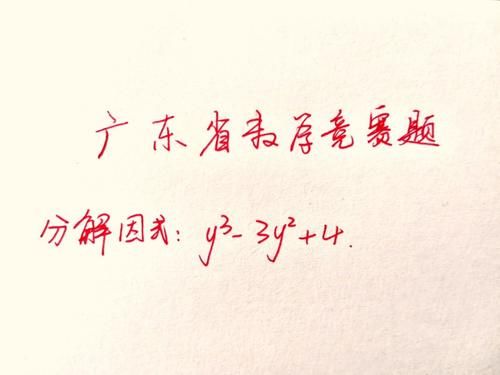 广东省数学竞赛题
分解因式: y³-3y²+4.